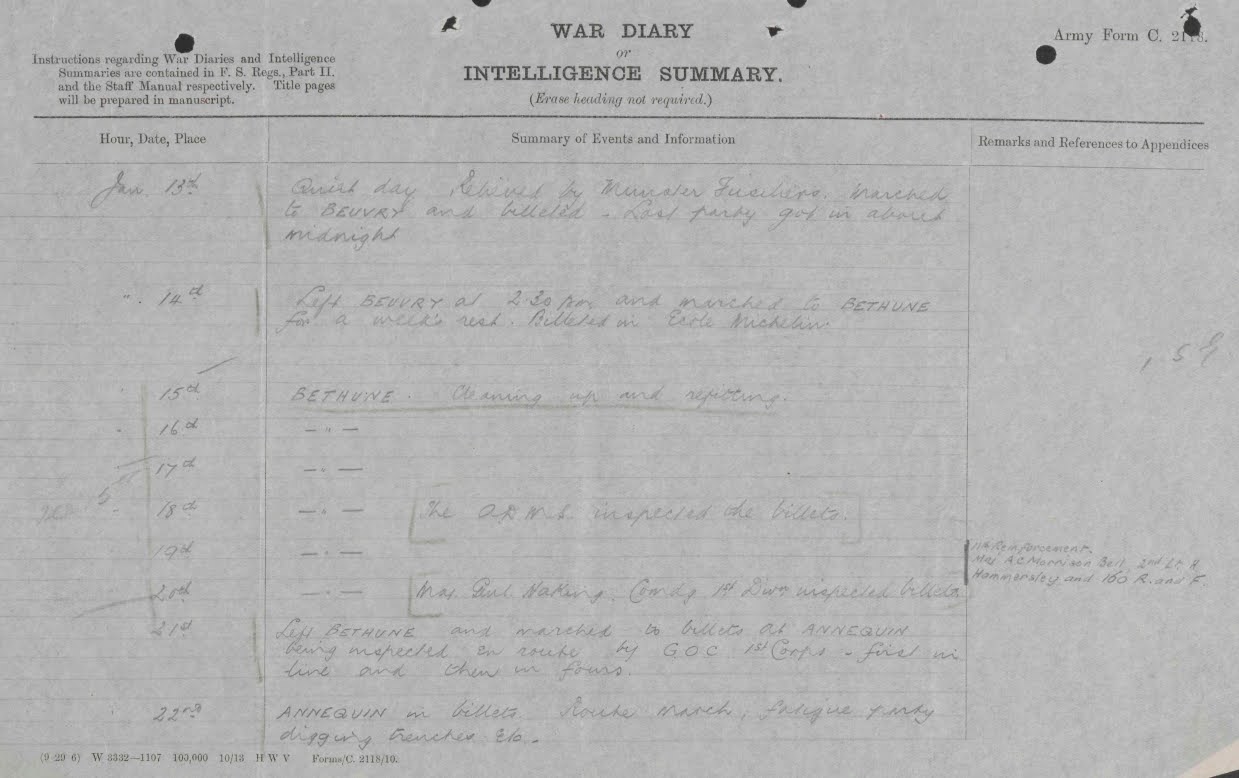 WAR DIARY
or
INTELLIGENCE SUMMARY.
(Erase heading not required.)
Army Form C. 2118.
Instructions regarding War Diaries and Intelligence
Summaries are contained in F. S. Regs., Part II.
and the Staff Manual respectively. Title pages
will be prepared in manuscript.
Hour, Date, Place
Summary of Events and Information
Remarks and References to Appendices
Jan. 13th Quiet day Relieved by Munster Fusiliers. Marched
to BEUVRY and billeted - Last party got in about
midnight
". 14th Left BEUVRY at 2.30 pm and marched to BETHUNE
for a week's rest. Billeted in Ecole Michelin.
15th BETHUNE. Cleaning up and refitting.
" 16th — " —
17th — " —
18th — " — The A.D.M.S. inspected the billets.
19th — " —
11th Reinforcement.
Maj A.C. Morrison Bell, 2nd Lt H
Hammersley and 160 R. and F.
20th — " — Maj. Genl Haking, Comdg 1st Divn inspected billets
21st Left BETHUNE and marched to billets at ANNEQUIN
being inspected en route by G.O.C. 1st Corps - first in
line and then in fours.
22nd ANNEQUIN in billets. Route March, fatigue party
digging trenches Etc.
(9 29 6) W 3332—1107 100,000 10/13 H W V Forms/C. 2118/10.